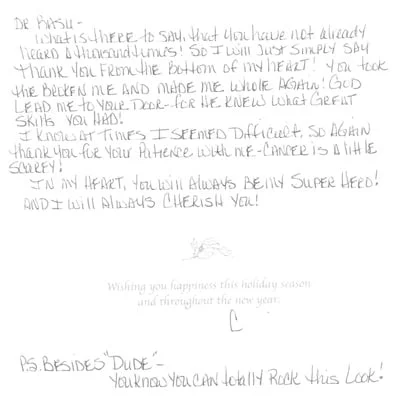 DR BASU-
WHAT IS THERE TO SAY, THAT YOU HAVE NOT ALREADY
HEARD A THOUSAND TIMES! SO I WILL JUST SIMPLY SAY
THANK YOU FROM THE BOTTOM OF MY HEART! YOU TOOK
THE BROKEN ME AND MADE ME WHOLE AGAIN! GOD
LEAD ME TO YOUR DOOR- FOR HE KNEW WHAT GREAT
SKILLS YOU HAD!
I KNOW AT TIMES I SEEMED DIFFICULT, SO AGAIN
THANK YOU FOR YOUR PATIENCE WITH ME-CANCER IS A LITTLE
SCAREY!
IN MY HEART, YOU WILL ALWAYS BE MY SUPER HERO!
AND I WILL ALWAYS CHERISH YOU!
Wishing you happiness this holiday season
and throughout the new year.
C
P.S. BESIDES "DUDE"-
YOU KNOW YOU CAN TOTALLY ROCK THIS LOOK!